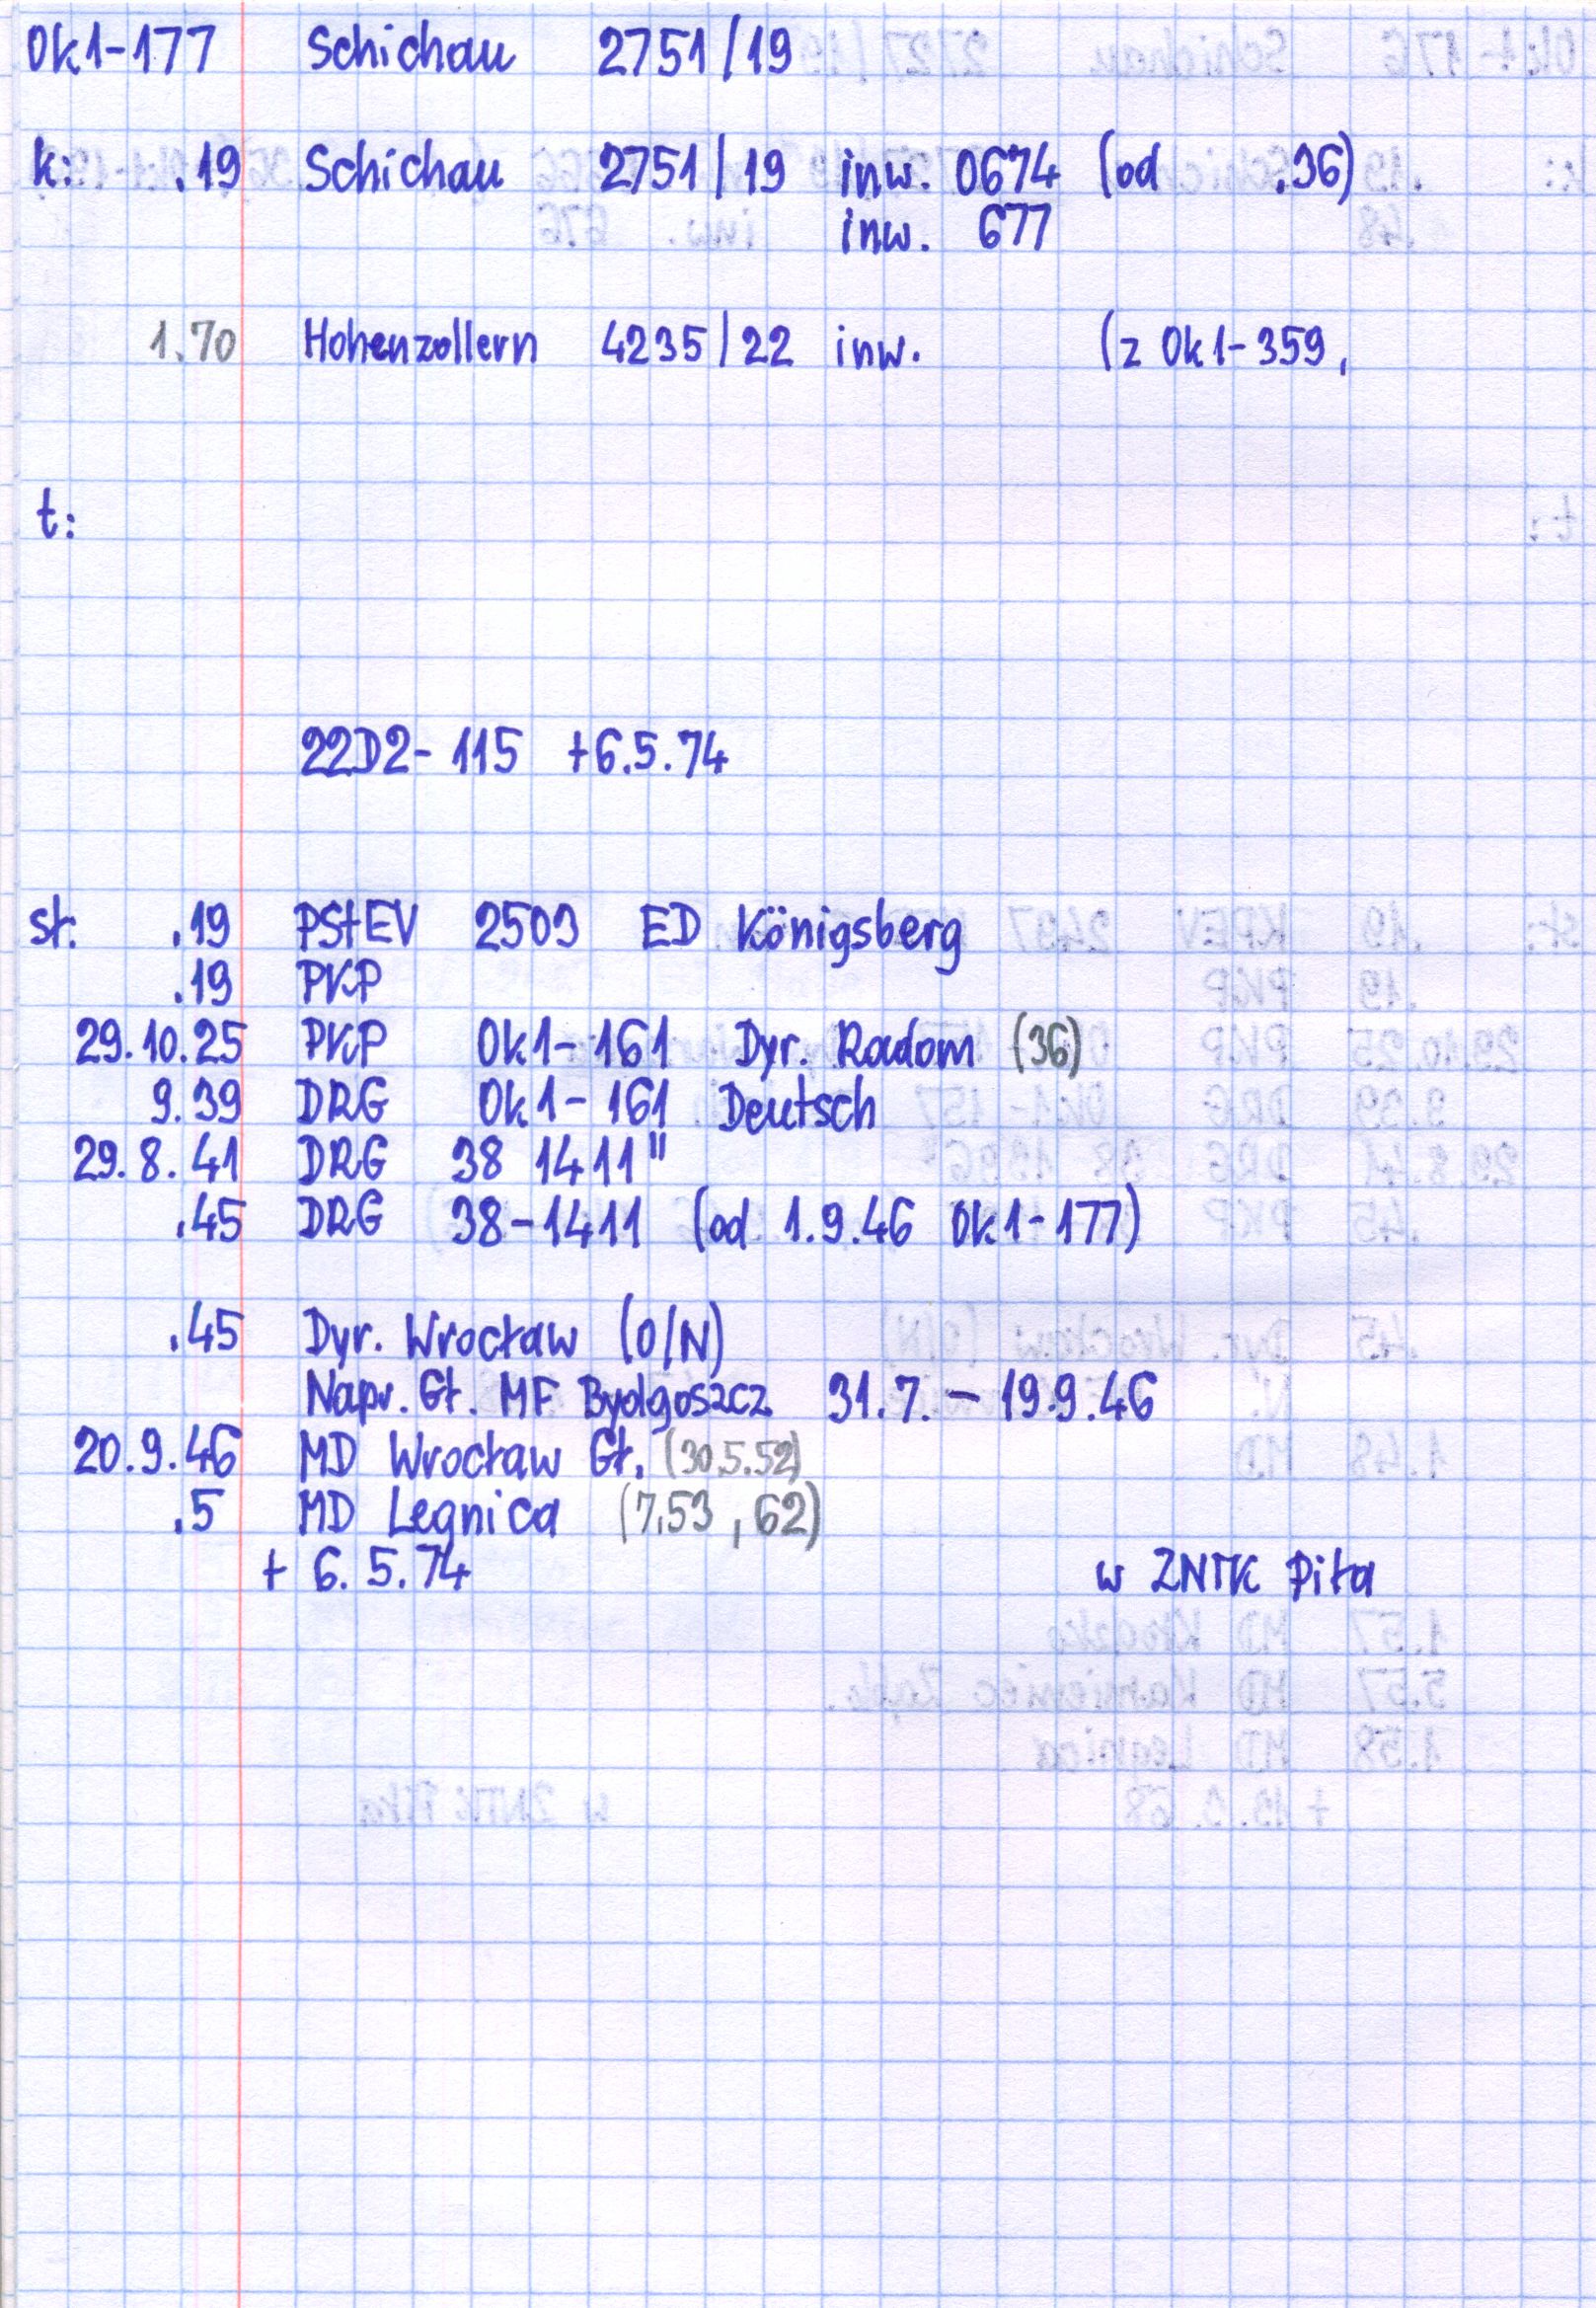 Ok1-177 Schichau 2751/19
k: .19 Schichau 2751/19 inw. 0674 (od .36)
inw. 677
1.70 Hohenzollern 4235/22 inw. (z Ok1-359,
t:
22D2-115 +6.5.74
st: .19 PStEV 2503 ED Königsberg
.19 PKP
29.10.25 PKP Ok1-161 Dyr. Radom (36)
9.39 DRG Ok1-161 Deutsch
29.8.41 DRG 38 1411"
.45 DRG 38-1411 (od 1.9.46 Ok1-177)
.45 Dyr. Wrocław (O/N)
Napr. Gł. MF Bydgoszcz 31.7. - 19.9.46
20.9.46 MD Wrocław Gł. (30.5.52)
.5 MD Legnica (7.53, 62)
+ 6.5.74 w ZNTK Piła